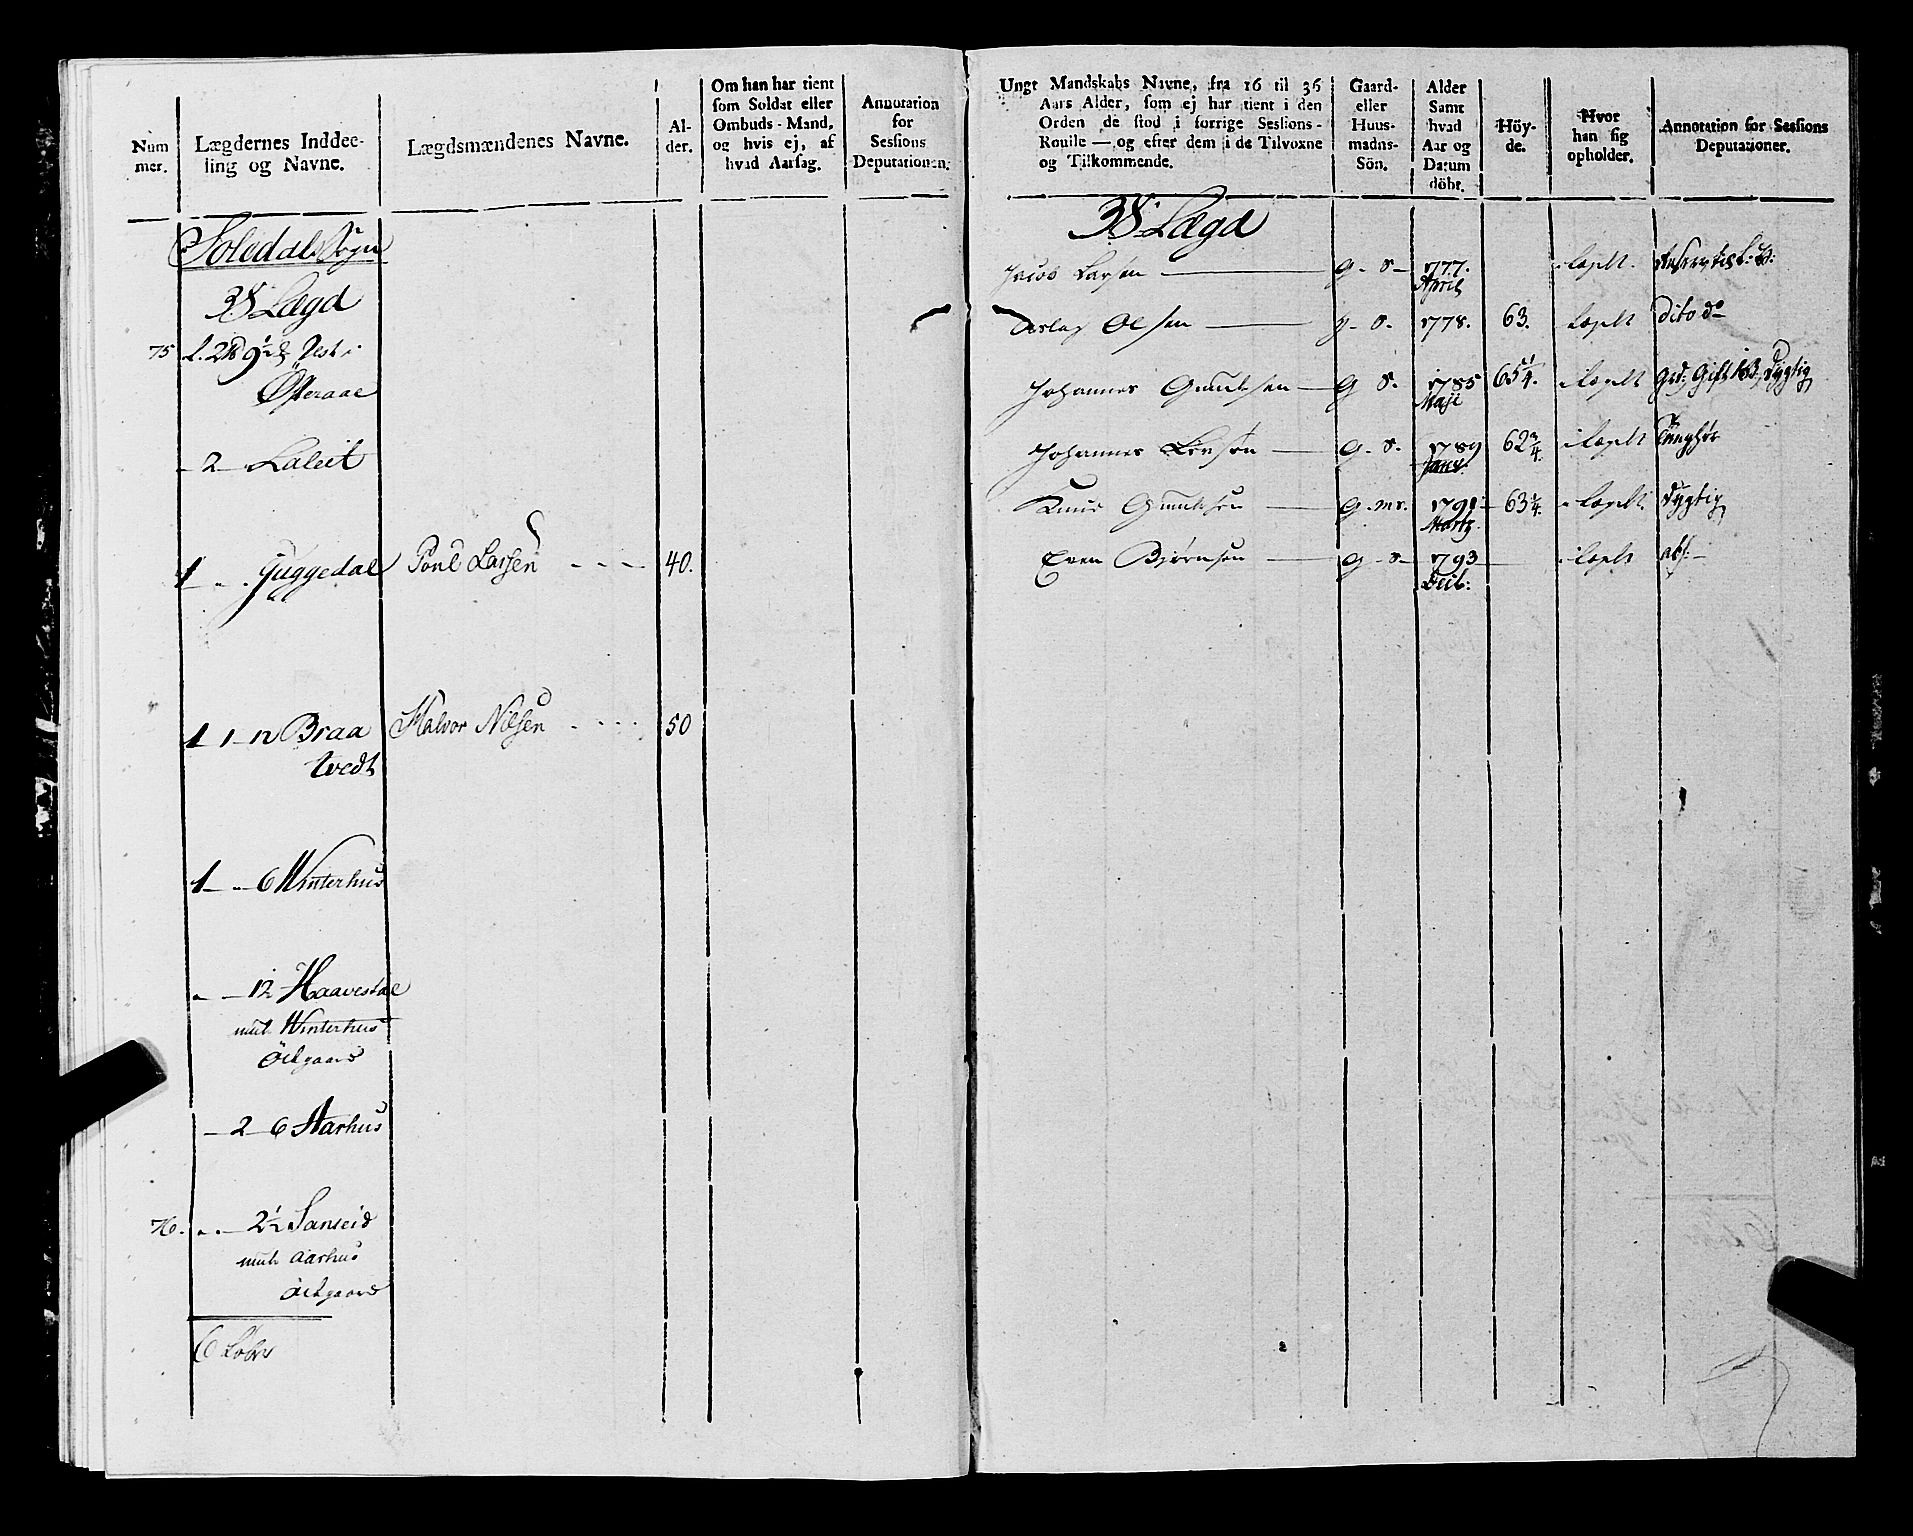 Num
mer.
Lægdernes Inddee-
ling og Navne.
Lægdsmændenes Navne.
Al-
der.
Om han har tient
som Soldat eller
Ombuds-Mand,
og hvis ej, af
hvad Aarsag.
Annotation
for
Sessions
Deputationen.
Soledals Sogn
38 Lægd
75
Österaae
2 Laleit
1 Juggedal Poul Larsen 40.
1 1 12 Braa Halvor Nilsen 50
tvedt
1 6 Winterhus
12 Haavestdal
mut Winterhus
Ödegaard
2 6 Aarhus
76. 2½ Sanseid
mut Aarhus
Ödegaard
6 Lober
Ungt Mandskabs Navne, fra 16 til 36
Aars Alder, som ej har tient i den
Orden de stod i forrige Sessions-
Roulle — og efter dem i de Tilvoxne
og Tilkommende.
Gaard-
eller
Huus-
mands-
Sön.
Alder
Samt
hvad
Aar og
Datum
döbt.
Höy-
de.
Hvor
han sig
opholder.
Annotation for Sessions
Deputationer.
38 Lægd
Jacob Larsen — G - S - 1777. i Lægdt.
April
Aslag Olsen — g - S. 1778. 63. Lægdt dito do
Johannes Gunulfsen — G S. 1785 65¼. i Lægdt Dygtig
Maji
Johannes — G - S. 1789 62¾. i Lægdt
Janv:
Knud Gunulfsen — G. 1791 63¼. i Lægdt Dygtig
Martz
Even Bjørnsen — G - S - 1793 i Lægdt abs:
Decb: